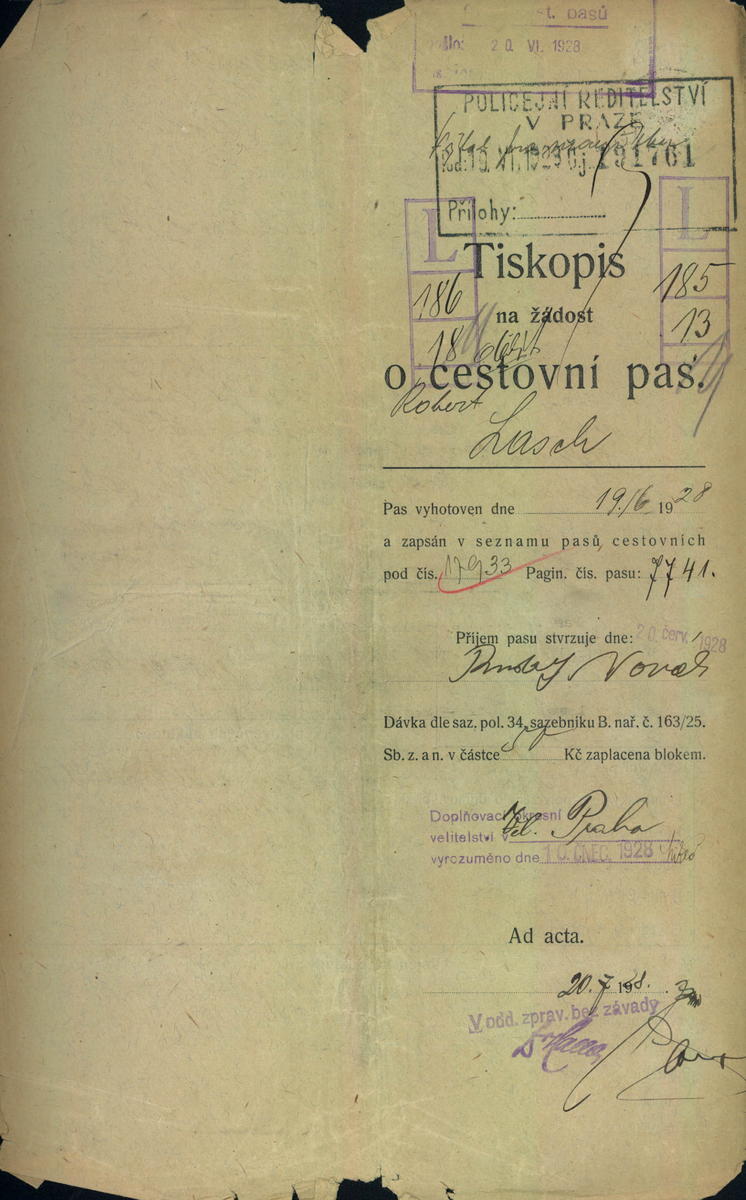 st. pasů
20 VI. 1928
POLICEJNÍ ŘEDITELSTVÍ
V PRAZE
191761
Přílohy:
L
L
Tiskopis
186
185
na žádost
18
13
o cestovní pas.
Robert
Lasch
Pas vyhotoven dne 19./6. 1928
a zapsán v seznamu pasů cestovních
pod čís. 17933 Pagin. čís. pasu: 7741.
Příjem pasu stvrzuje dne: 20. červ. 1928
Novák
Dávka dle saz. pol. 34, sazebníku B. nař. č. 163/25.
Sb. z. a n. v částce Kč zaplacena blokem.
Doplňovací okresní
velitelství v Praha
vyrozuměno dne 10. ČNEC. 1928
Ad acta.
20. 7 1928.
V odd. zprav. bez závady